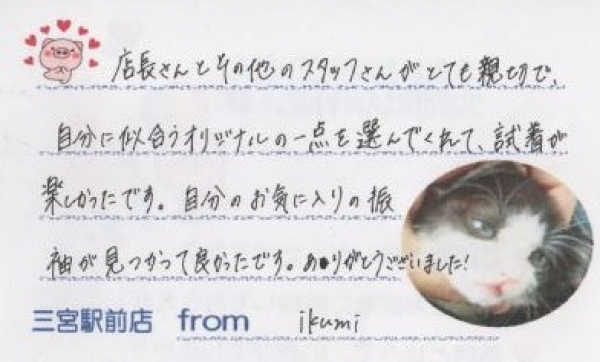 店長さんとその他のスタッフさんがとても親切で、
自分に似合うオリジナルの一点を選んでくれて、試着が
楽しかったです。自分のお気に入りの振
袖が見つかって良かったです。ありがとうございました!
三宮駅前店 from ikumi